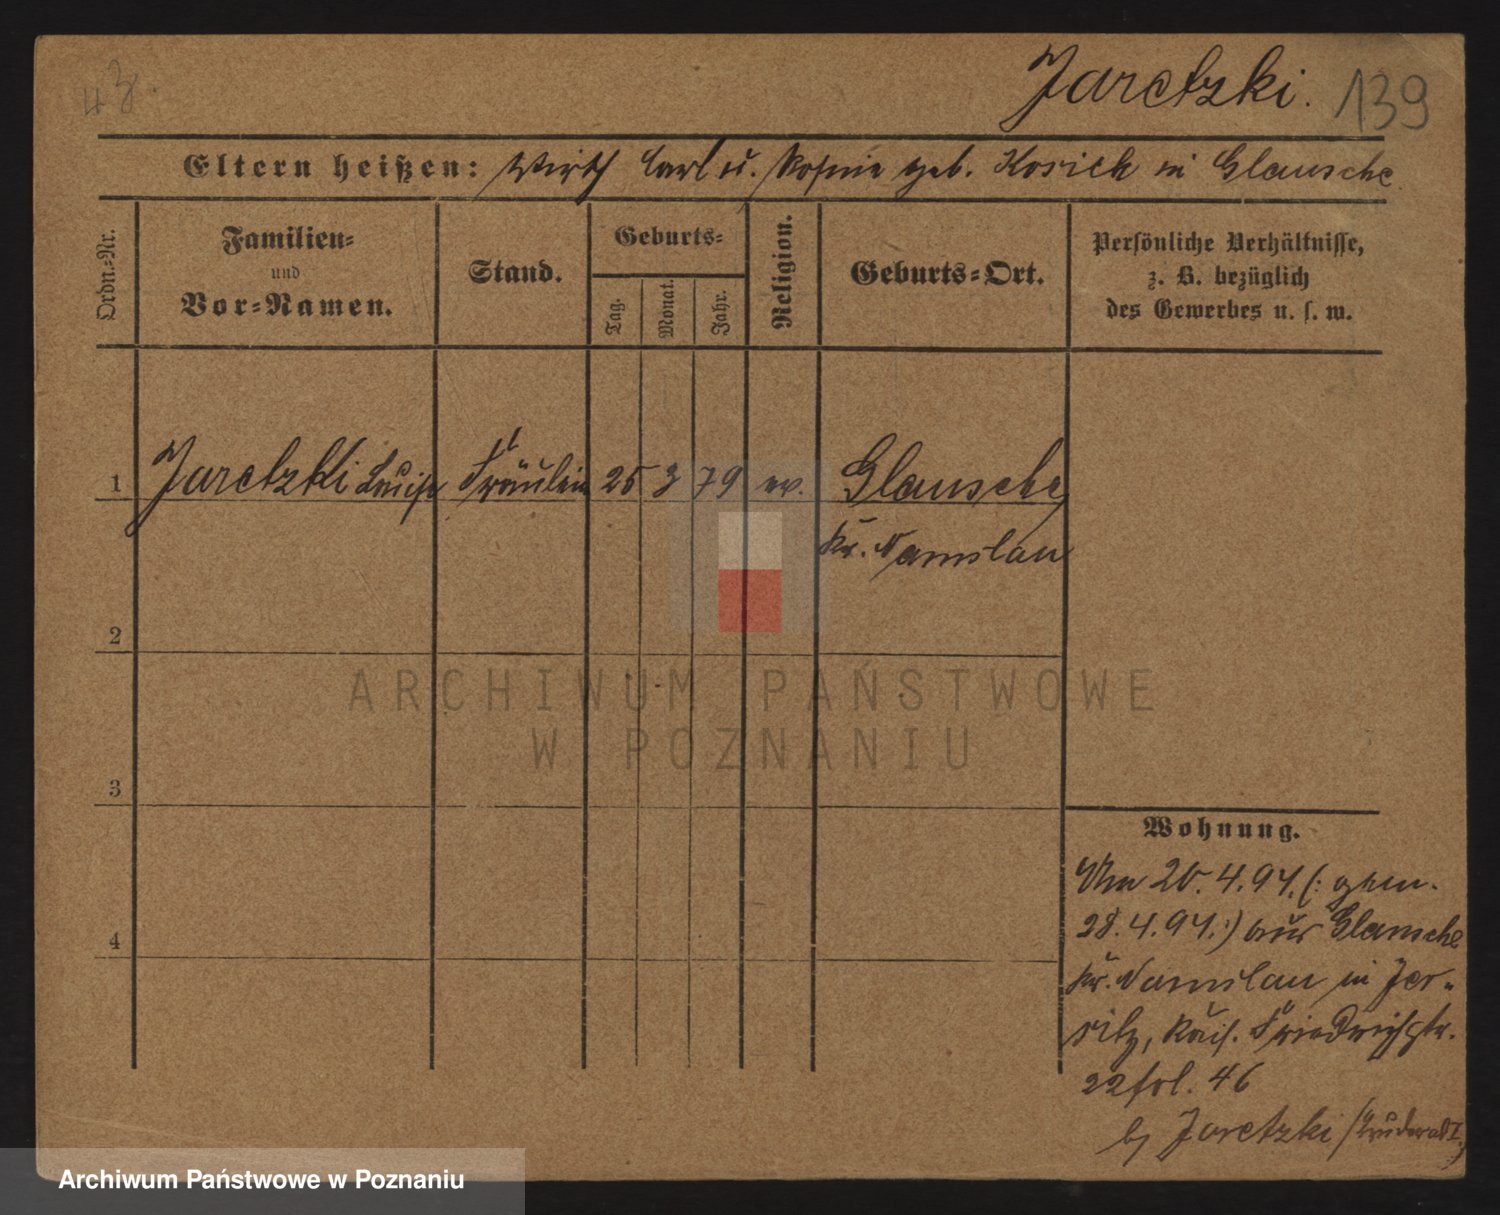 Jaretzki. 139
Eltern heißen: Wirth Carl u. Rosine geb. Kosick in Glausche
Ordn.-Nr.
Familien-
und
Vor-Namen.
Stand.
Geburts-
Tag.
Monat.
Jahr.
Religion.
Geburts-Ort.
Persönliche Verhältnisse,
z. B. bezüglich
des Gewerbes u. s. w.
1 Jaretzki Luise Fräulein 25 3 79 ev. Glausche
Kr. Namslau
2
3
4
Wohnung.
Am 20.4.94. (: gem.
28.4.94. :) aus Glausche
Kr. Namslau in Jer-
sitz, Kais. Friedrichstr.
22 fol. 46
by Jaretzki
ARCHIWUM PAŃSTWOWE
W POZNANIU
Archiwum Państwowe w Poznaniu